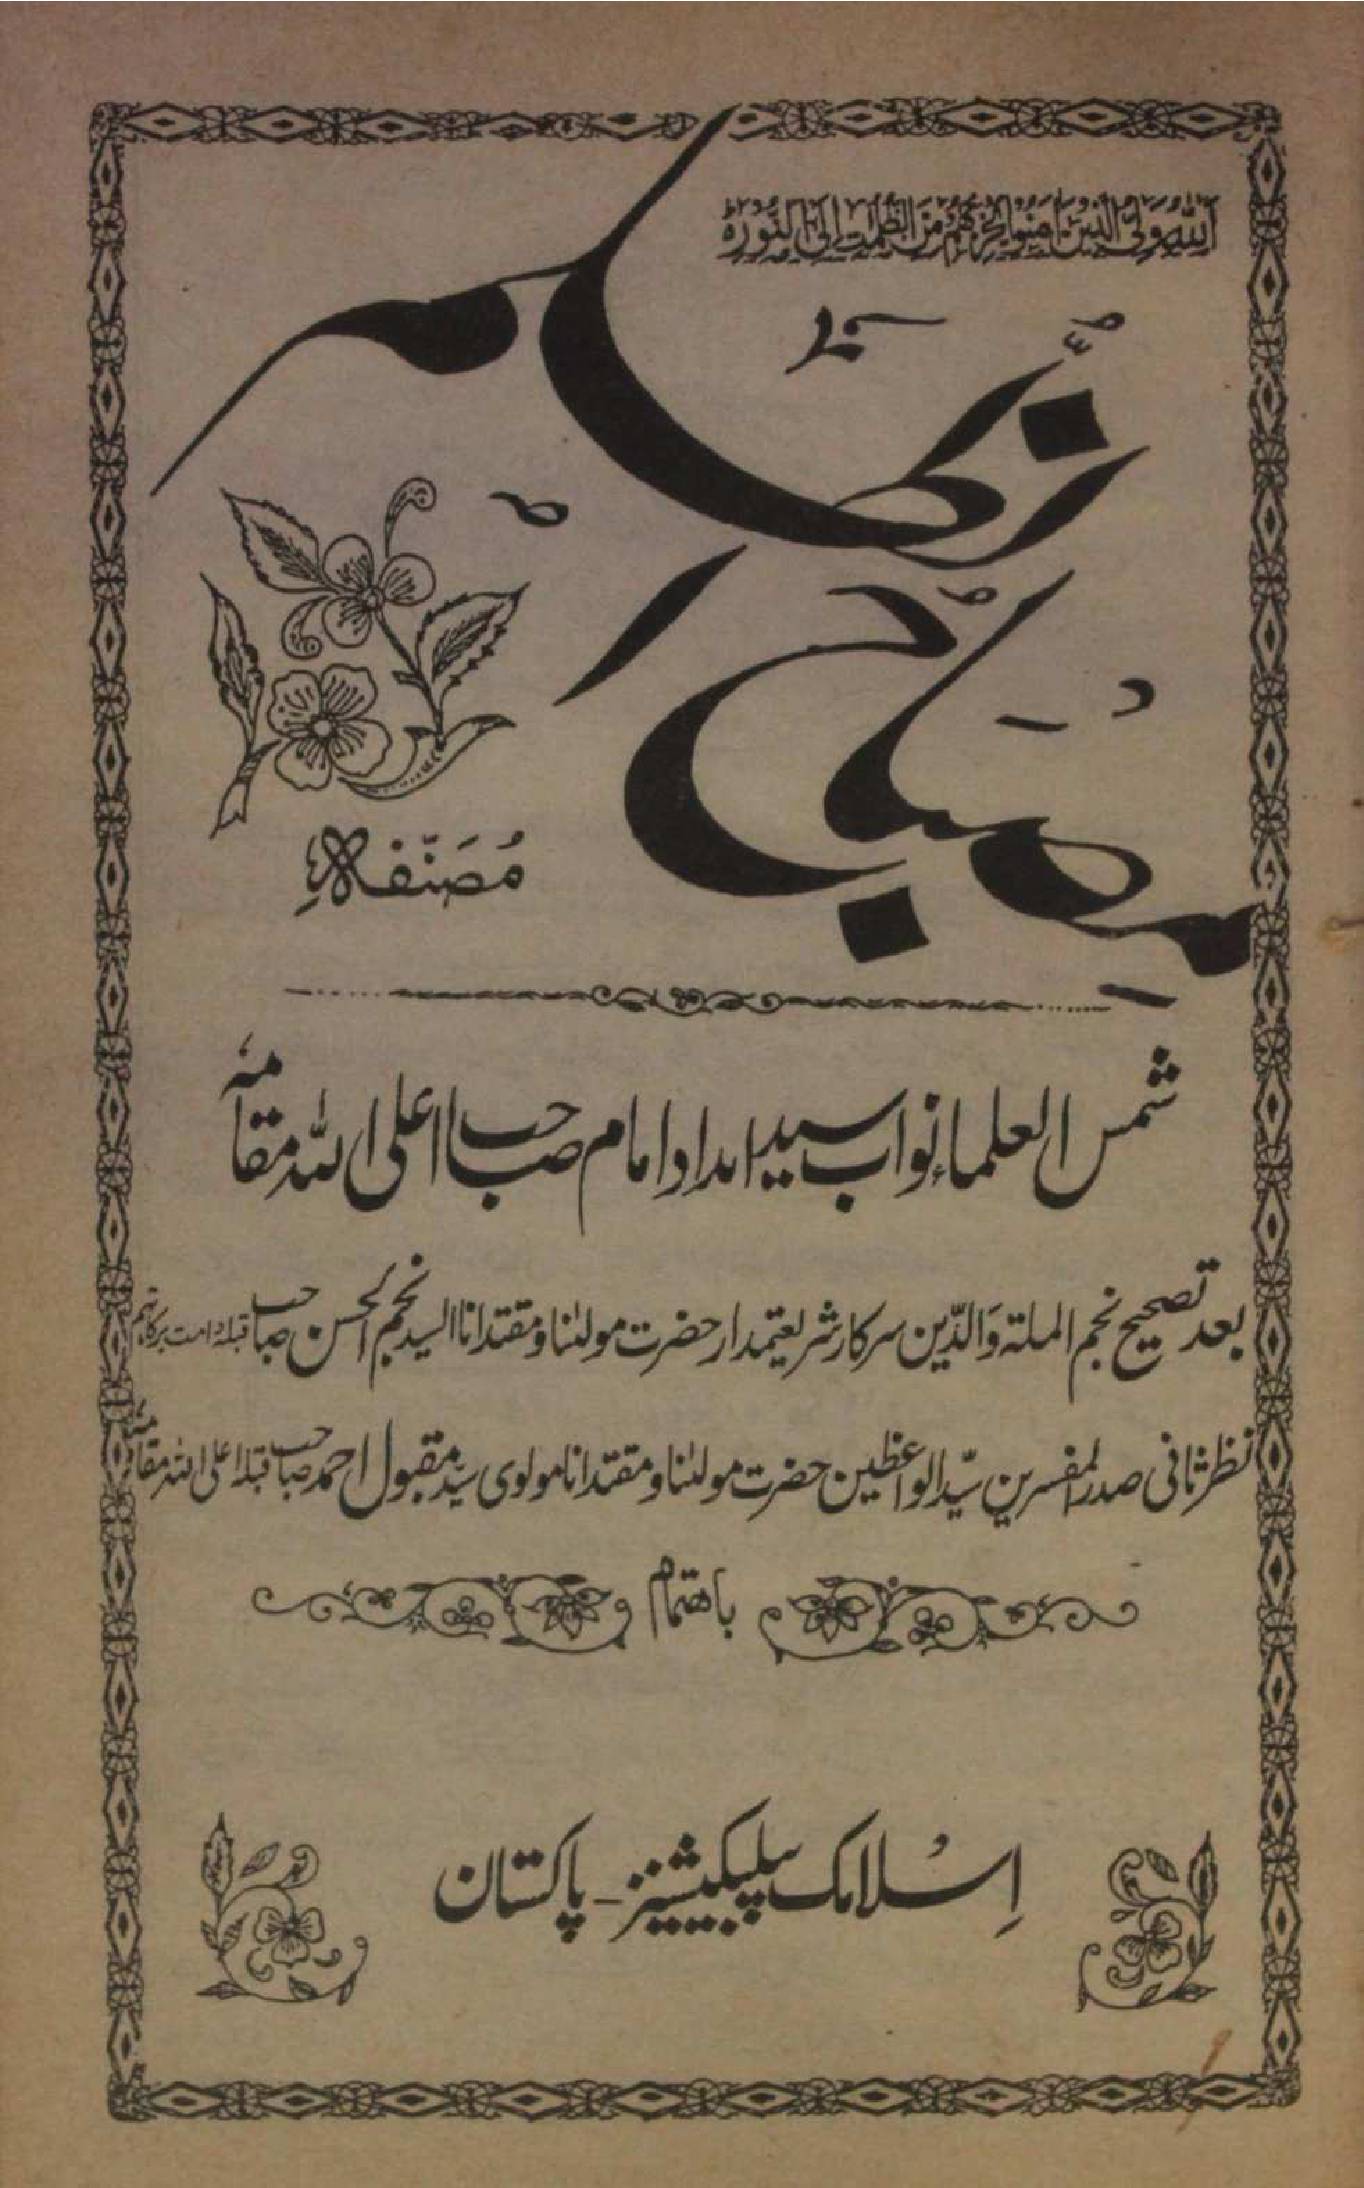 اَللّٰهُ وَلِيُّ الَّذِيْنَ اٰمَنُوْا يُخْرِجُهُمْ مِّنَ الظُّلُمٰتِ اِلَى النُّوْرِ
مصباح الظلم
مُصَنّفہ
شمس العلماء نواب سید امداد امام صاحب اعلی اللہ مقامہٗ
بعد تصحیح نجم الملتہ وَالدّین سرکار شریعتمدار حضرت مولٰنا و مقتدانا السید نجم الحسن صاحب قبلہ دامت برکاتہم
نظر ثانی صدر المفسرین سیّد الواعظین حضرت مولٰنا و مقتدانا مولوی سیّد مقبول احمد صاحب قبلہ اعلی اللہ مقامہٗ
باہتمام
اِسْلامک پبلیکیشنز - پاکستان